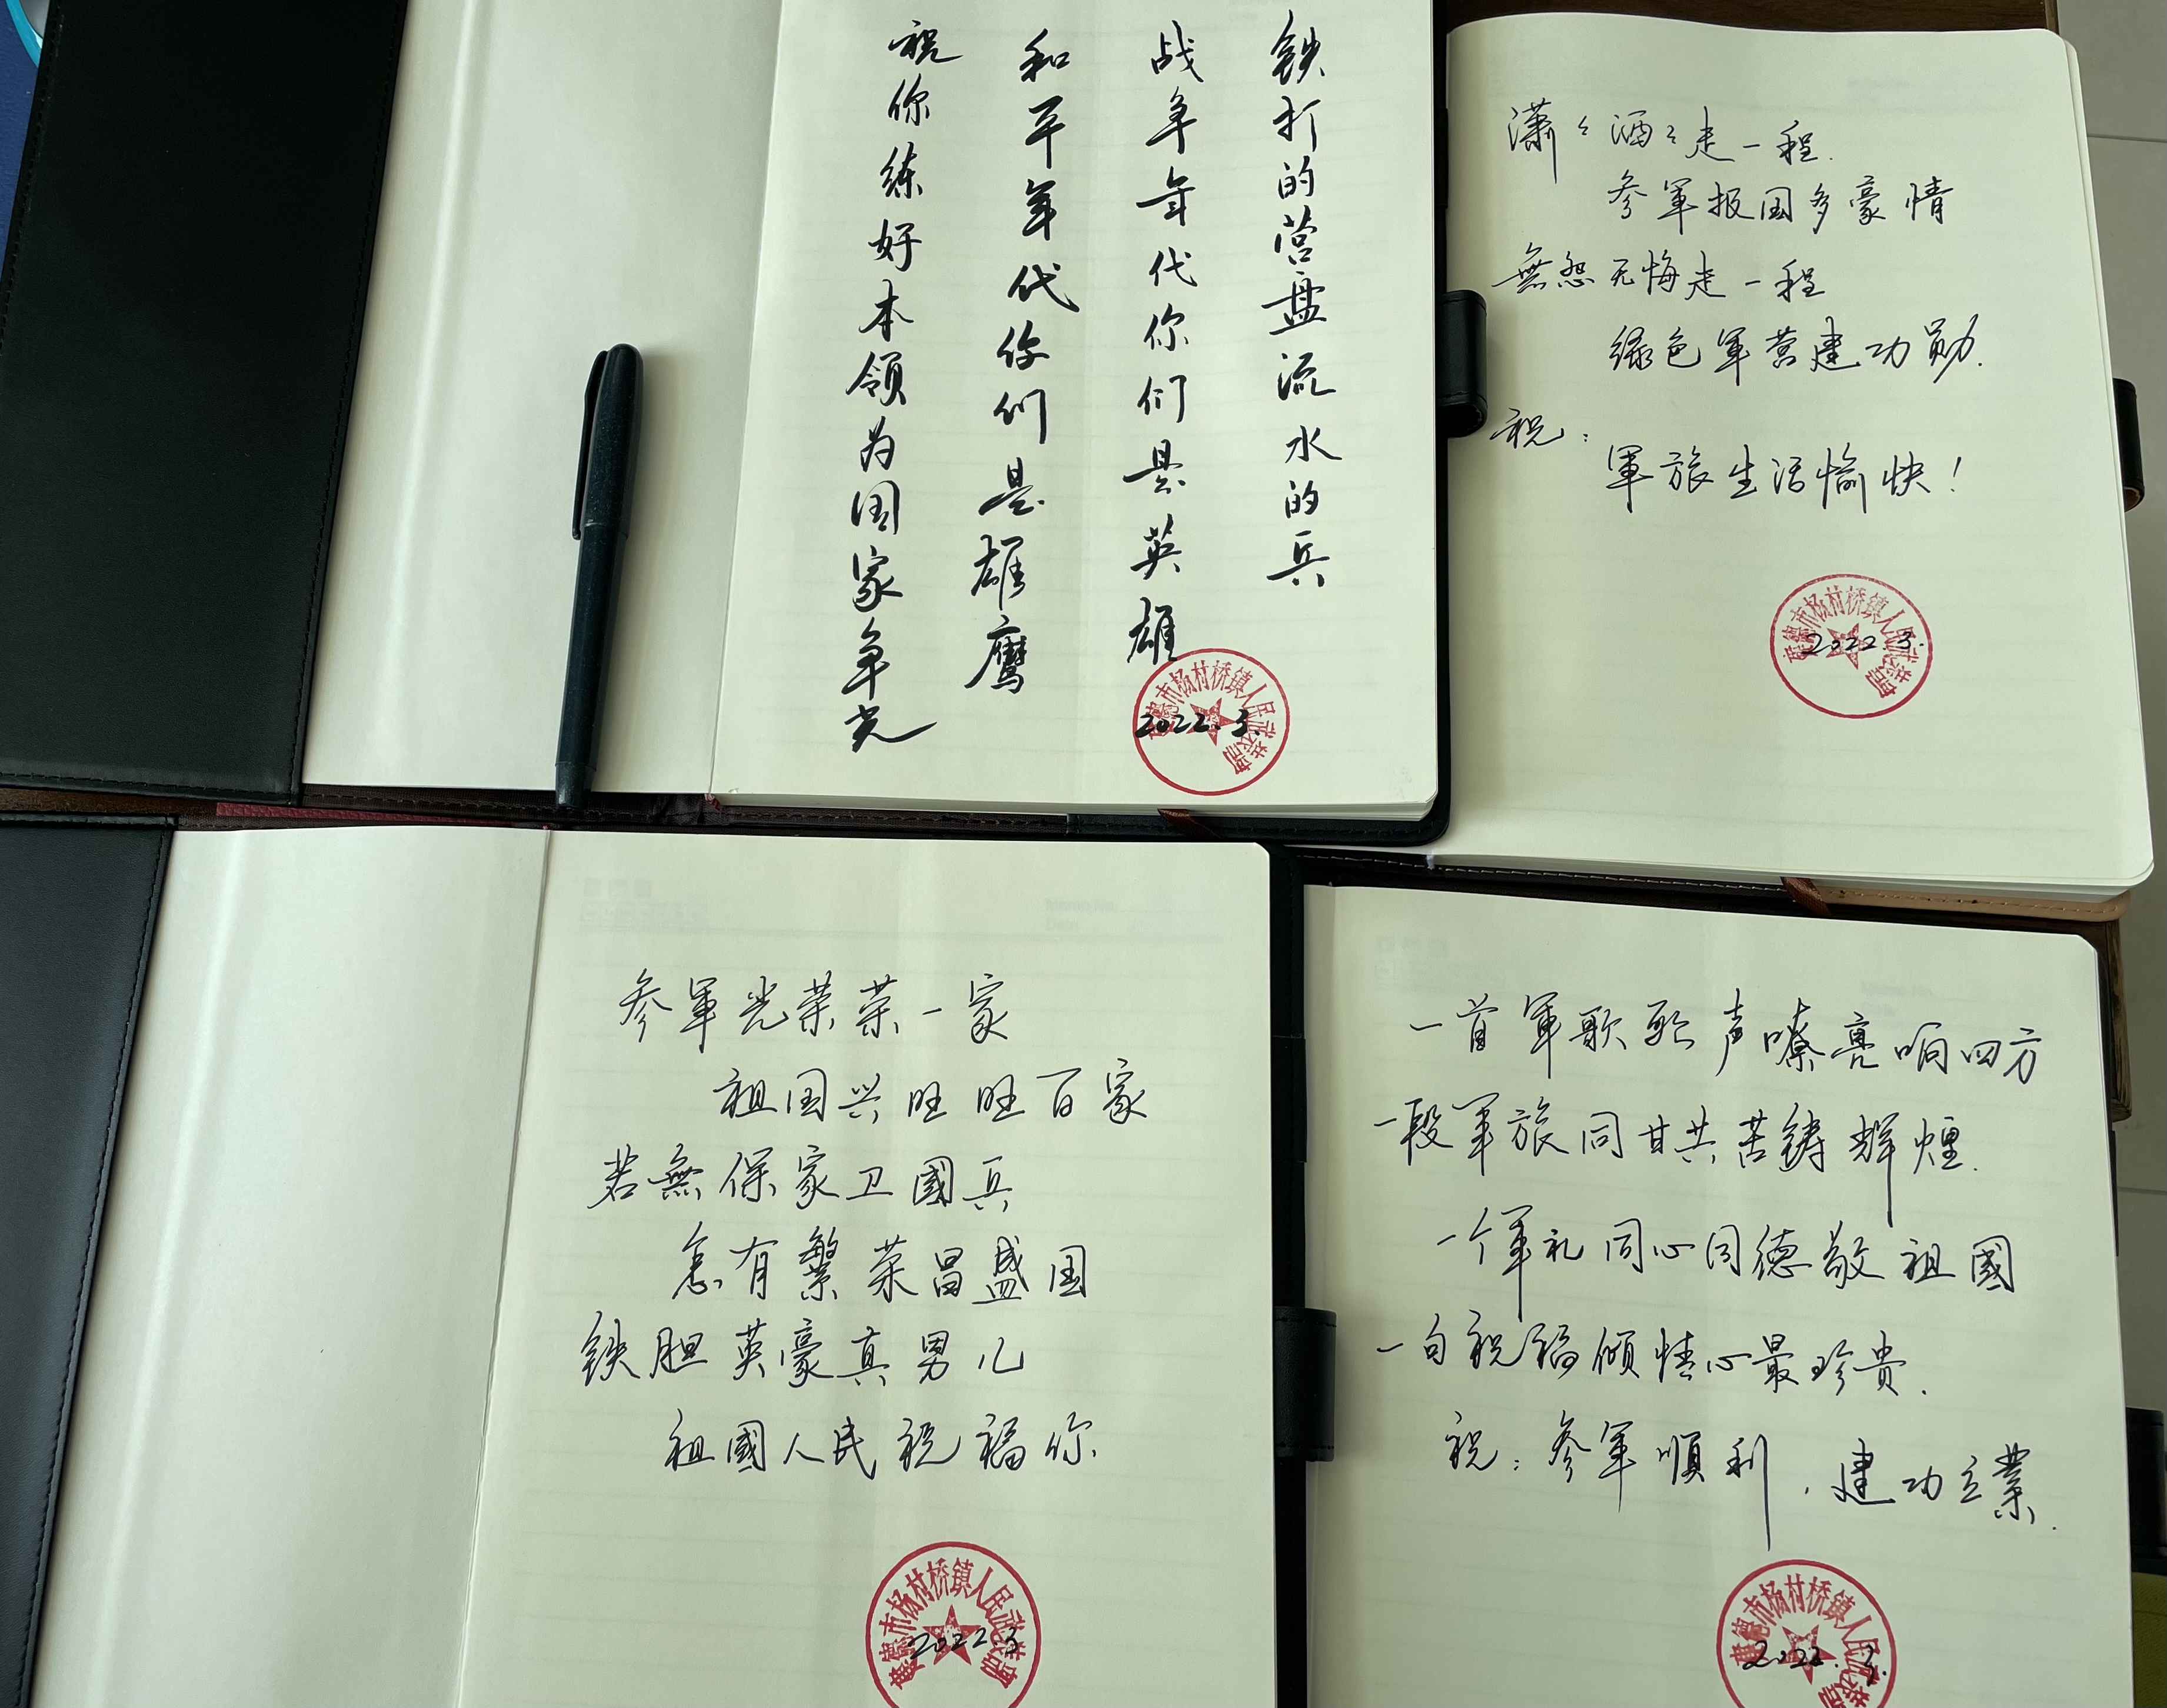 铁打的营盘流水的兵
战争年代你们是英雄
和平年代你们是雄鹰
祝你练好本领为国家争光
建德市杨村桥镇人民武装部
2022.3.
潇〻洒〻走一程.
参軍报国多豪情
無怨无悔走一程
绿色軍营建功勋.
祝:
軍旅生活愉快!
建德市杨村桥镇人民武装部
2022.3.
参軍光荣荣一家
祖国兴旺旺百家
若無保家卫國兵
怎有繁荣昌盛国
铁胆英豪真男儿
祖國人民祝福你
建德市杨村桥镇人民武装部
2022.3
一首軍歌歌声嘹亮响四方
一段军旅同甘共苦铸辉煌.
一个军礼同心同德敬祖國
一句祝福倾情心最珍贵.
祝:参军順利,建功立業.
建德市杨村桥镇人民武装部
2022.3.